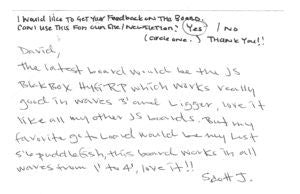 I would like to get your feedback on the board.
Can I use this for our site/newsletter? Yes / No
(circle one.) Thank you!!
David,
The latest board would be the JS
BlakBox HyFi RP which works really
good in waves 3' and bigger, love it
like all my other JS boards. But my
favorite go to board would be my Lost
5'6 puddle fish, this board works in all
waves from 1' to 4', love it!!
Scott J.